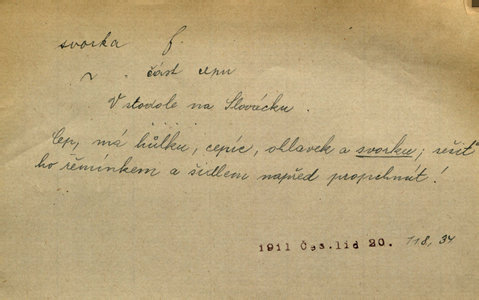 svorka f.
~ . část cepu
V stodole na Slovácku.
Cep, má hůlku, cepíc, ohlavek a svorku; sešiť
ho řemínkem a šidlem napřed propchnút!
1911 Čes.lid 20. 118, 34